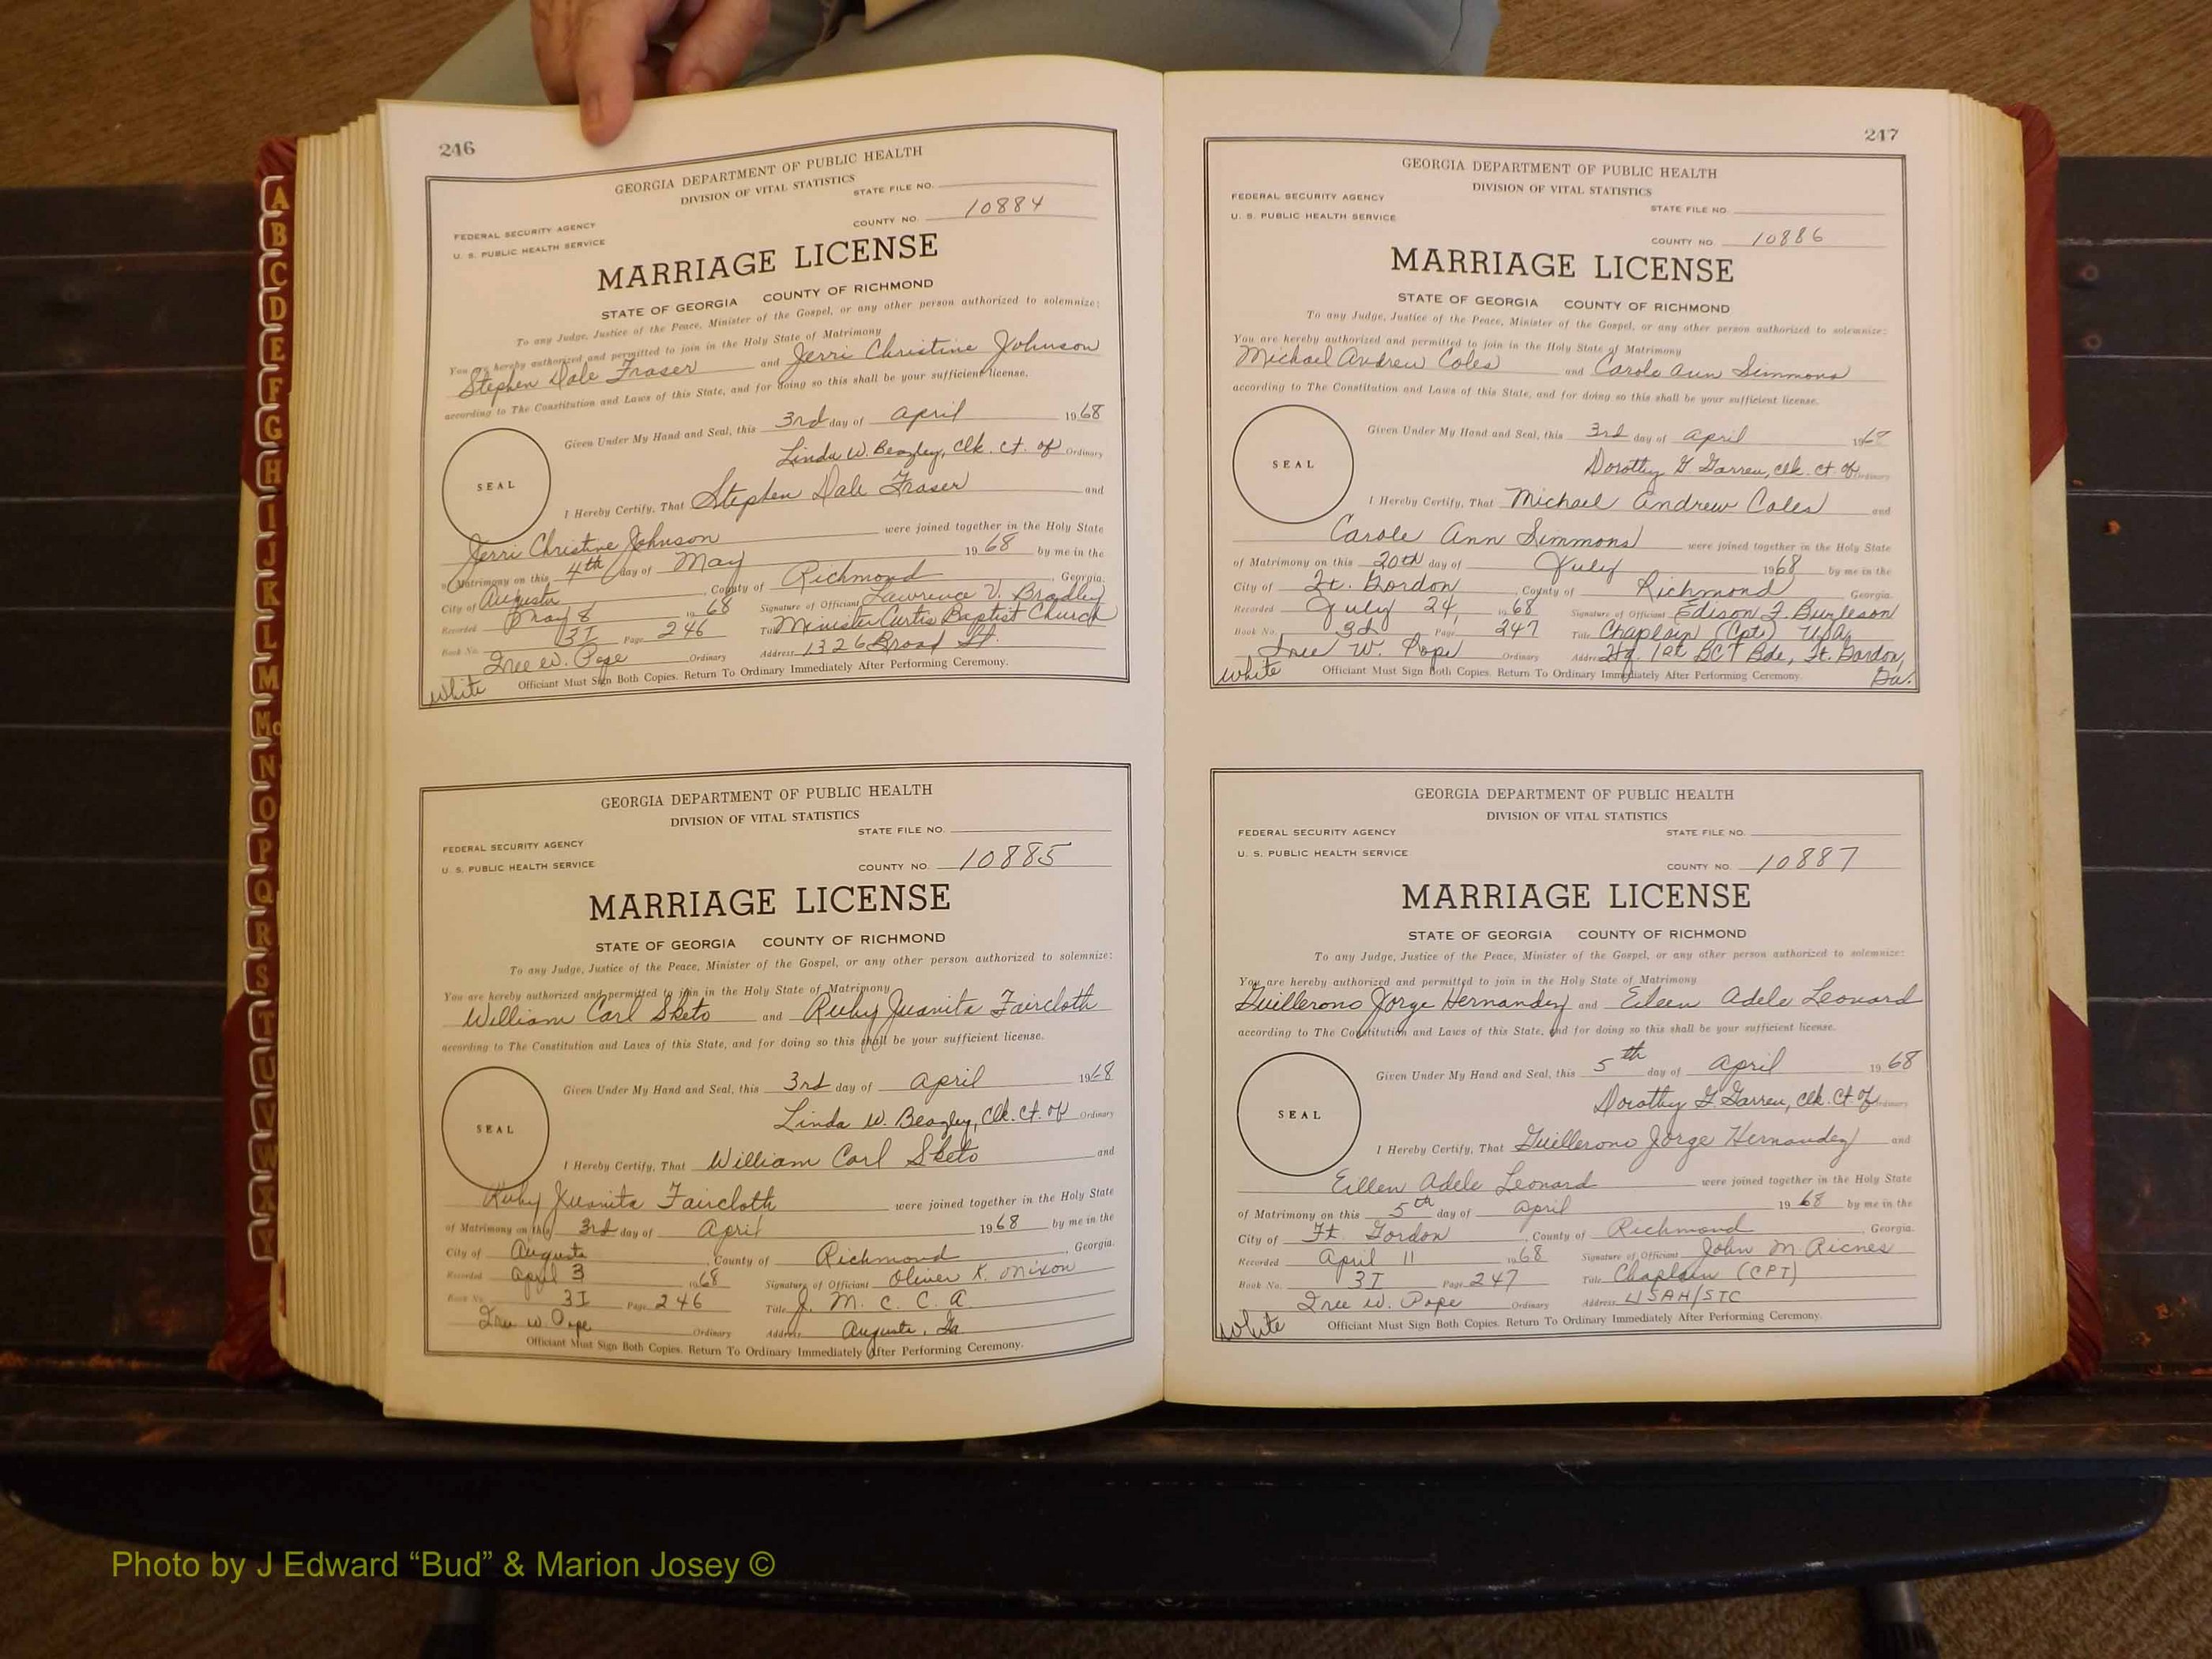 A
B
C
D
E
F
G
H
I
J
K
L
M
Mc
N
O
P
Q
R
S
T
U
V
W
X
Y
246
GEORGIA DEPARTMENT OF PUBLIC HEALTH
DIVISION OF VITAL STATISTICS
STATE FILE NO.
FEDERAL SECURITY AGENCY
COUNTY NO. 10884
U. S. PUBLIC HEALTH SERVICE
MARRIAGE LICENSE
STATE OF GEORGIA COUNTY OF RICHMOND
To any Judge, Justice of the Peace, Minister of the Gospel, or any other person authorized to solemnize:
You are hereby authorized and permitted to join in the Holy State of Matrimony
Stephen Dale Fraser and Jerri Christine Johnson
according to The Constitution and Laws of this State, and for doing so this shall be your sufficient license.
Given Under My Hand and Seal, this 3rd day of April 1968
Linda W. Beazley, Clk. Ct. of Ordinary
SEAL
I Hereby Certify, That Stephen Dale Fraser and
Jerri Christine Johnson were joined together in the Holy State
of Matrimony on this 4th day of May 1968 by me in the
City of Augusta, County of Richmond, Georgia.
Recorded May 8 1968 Signature of Officiant Lawrence V. Bradley
Book No. 3I Page 246 Title Minister Curtis Baptist Church
Iree W. Pope Ordinary Address 1326 Broad St.
White Officiant Must Sign Both Copies. Return To Ordinary Immediately After Performing Ceremony.
GEORGIA DEPARTMENT OF PUBLIC HEALTH
DIVISION OF VITAL STATISTICS
STATE FILE NO.
FEDERAL SECURITY AGENCY
U. S. PUBLIC HEALTH SERVICE COUNTY NO. 10885
MARRIAGE LICENSE
STATE OF GEORGIA COUNTY OF RICHMOND
To any Judge, Justice of the Peace, Minister of the Gospel, or any other person authorized to solemnize:
You are hereby authorized and permitted to join in the Holy State of Matrimony
William Carl Sketo and Ruby Juanita Faircloth
according to The Constitution and Laws of this State, and for doing so this shall be your sufficient license.
Given Under My Hand and Seal, this 3rd day of April 1968
Linda W. Beazley, Clk. Ct. of Ordinary
SEAL
I Hereby Certify, That William Carl Sketo and
Ruby Juanita Faircloth were joined together in the Holy State
of Matrimony on this 3rd day of April 1968 by me in the
City of Augusta, County of Richmond, Georgia.
Recorded April 3 1968 Signature of Officiant Oliver K. Mixon
Book No. 3I Page 246 Title J. M. C. C. A.
Iree W. Pope Ordinary Address Augusta, Ga
Officiant Must Sign Both Copies. Return To Ordinary Immediately After Performing Ceremony.
247
GEORGIA DEPARTMENT OF PUBLIC HEALTH
DIVISION OF VITAL STATISTICS
FEDERAL SECURITY AGENCY STATE FILE NO.
U. S. PUBLIC HEALTH SERVICE
COUNTY NO. 10886
MARRIAGE LICENSE
STATE OF GEORGIA COUNTY OF RICHMOND
To any Judge, Justice of the Peace, Minister of the Gospel, or any other person authorized to solemnize:
You are hereby authorized and permitted to join in the Holy State of Matrimony
Michael Andrew Coles and Carole Ann Simmons
according to The Constitution and Laws of this State, and for doing so this shall be your sufficient license.
Given Under My Hand and Seal, this 3rd day of April 1968
Dorothy G. Garren, Clk. Ct. of Ordinary
SEAL
I Hereby Certify, That Michael Andrew Coles and
Carole Ann Simmons were joined together in the Holy State
of Matrimony on this 20th day of July 1968 by me in the
City of Ft. Gordon, County of Richmond, Georgia.
Recorded July 24, 1968 Signature of Officiant Edison F. Burleson
Book No. 3I Page 247 Title Chaplain (Cpt) USA
Iree W. Pope Ordinary Address Hq. 1st BCT Bde, Ft. Gordon, Ga.
White Officiant Must Sign Both Copies. Return To Ordinary Immediately After Performing Ceremony.
GEORGIA DEPARTMENT OF PUBLIC HEALTH
DIVISION OF VITAL STATISTICS
FEDERAL SECURITY AGENCY STATE FILE NO.
U. S. PUBLIC HEALTH SERVICE
COUNTY NO. 10887
MARRIAGE LICENSE
STATE OF GEORGIA COUNTY OF RICHMOND
To any Judge, Justice of the Peace, Minister of the Gospel, or any other person authorized to solemnize:
You are hereby authorized and permitted to join in the Holy State of Matrimony
Guillerono Jorge Hernandez and Eileen Adele Leonard
according to The Constitution and Laws of this State, and for doing so this shall be your sufficient license.
Given Under My Hand and Seal, this 5th day of April 1968
Dorothy G. Garren, Clk. Ct. of Ordinary
SEAL
I Hereby Certify, That Guillerono Jorge Hernandez and
Eileen Adele Leonard were joined together in the Holy State
of Matrimony on this 5th day of April 1968 by me in the
City of Ft. Gordon, County of Richmond, Georgia.
Recorded April 11 1968 Signature of Officiant John M.
Book No. 3I Page 247 Title Chaplain (CPT)
Iree W. Pope Ordinary Address USAH/STC
White Officiant Must Sign Both Copies. Return To Ordinary Immediately After Performing Ceremony.
Photo by J Edward “Bud” & Marion Josey ©